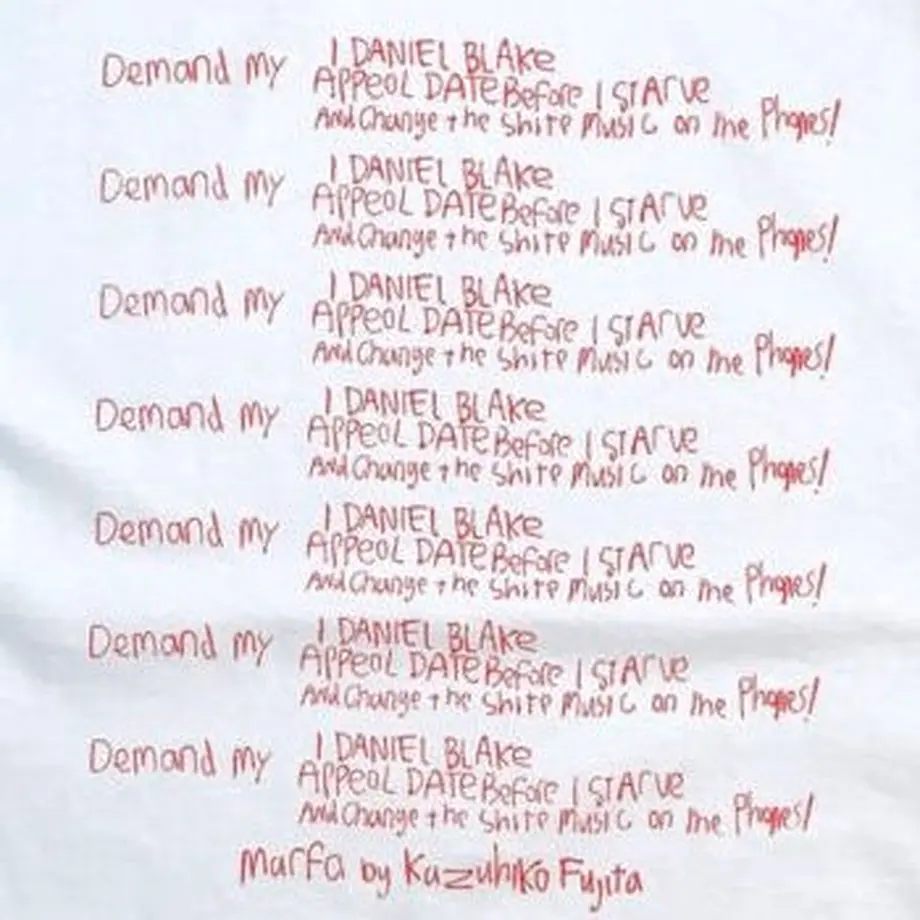 I DANIEL BLAKe
Demand my APPeOL DATe Before I STArve
And Change the Shite Music on the Phones!
I DANIEL BLAKe
Demand my APPeOL DATe Before I STArve
And Change the Shite Music on the Phones!
I DANIEL BLAKe
Demand my APPeOL DATe Before I STArve
And Change the Shite Music on the Phones!
I DANIEL BLAKe
Demand my APPeOL DATe Before I STArve
And Change the Shite Music on the Phones!
I DANIEL BLAKe
Demand my APPeOL DATe Before I STArve
And Change the Shite Music on the Phones!
I DANIEL BLAKe
Demand my APPeOL DATe Before I STArve
And Change the Shite Music on the Phones!
I DANIEL BLAKe
Demand my APPeOL DATe Before I STArve
And Change the Shite Music on the Phones!
Marfa by Kazuhiko Fujita